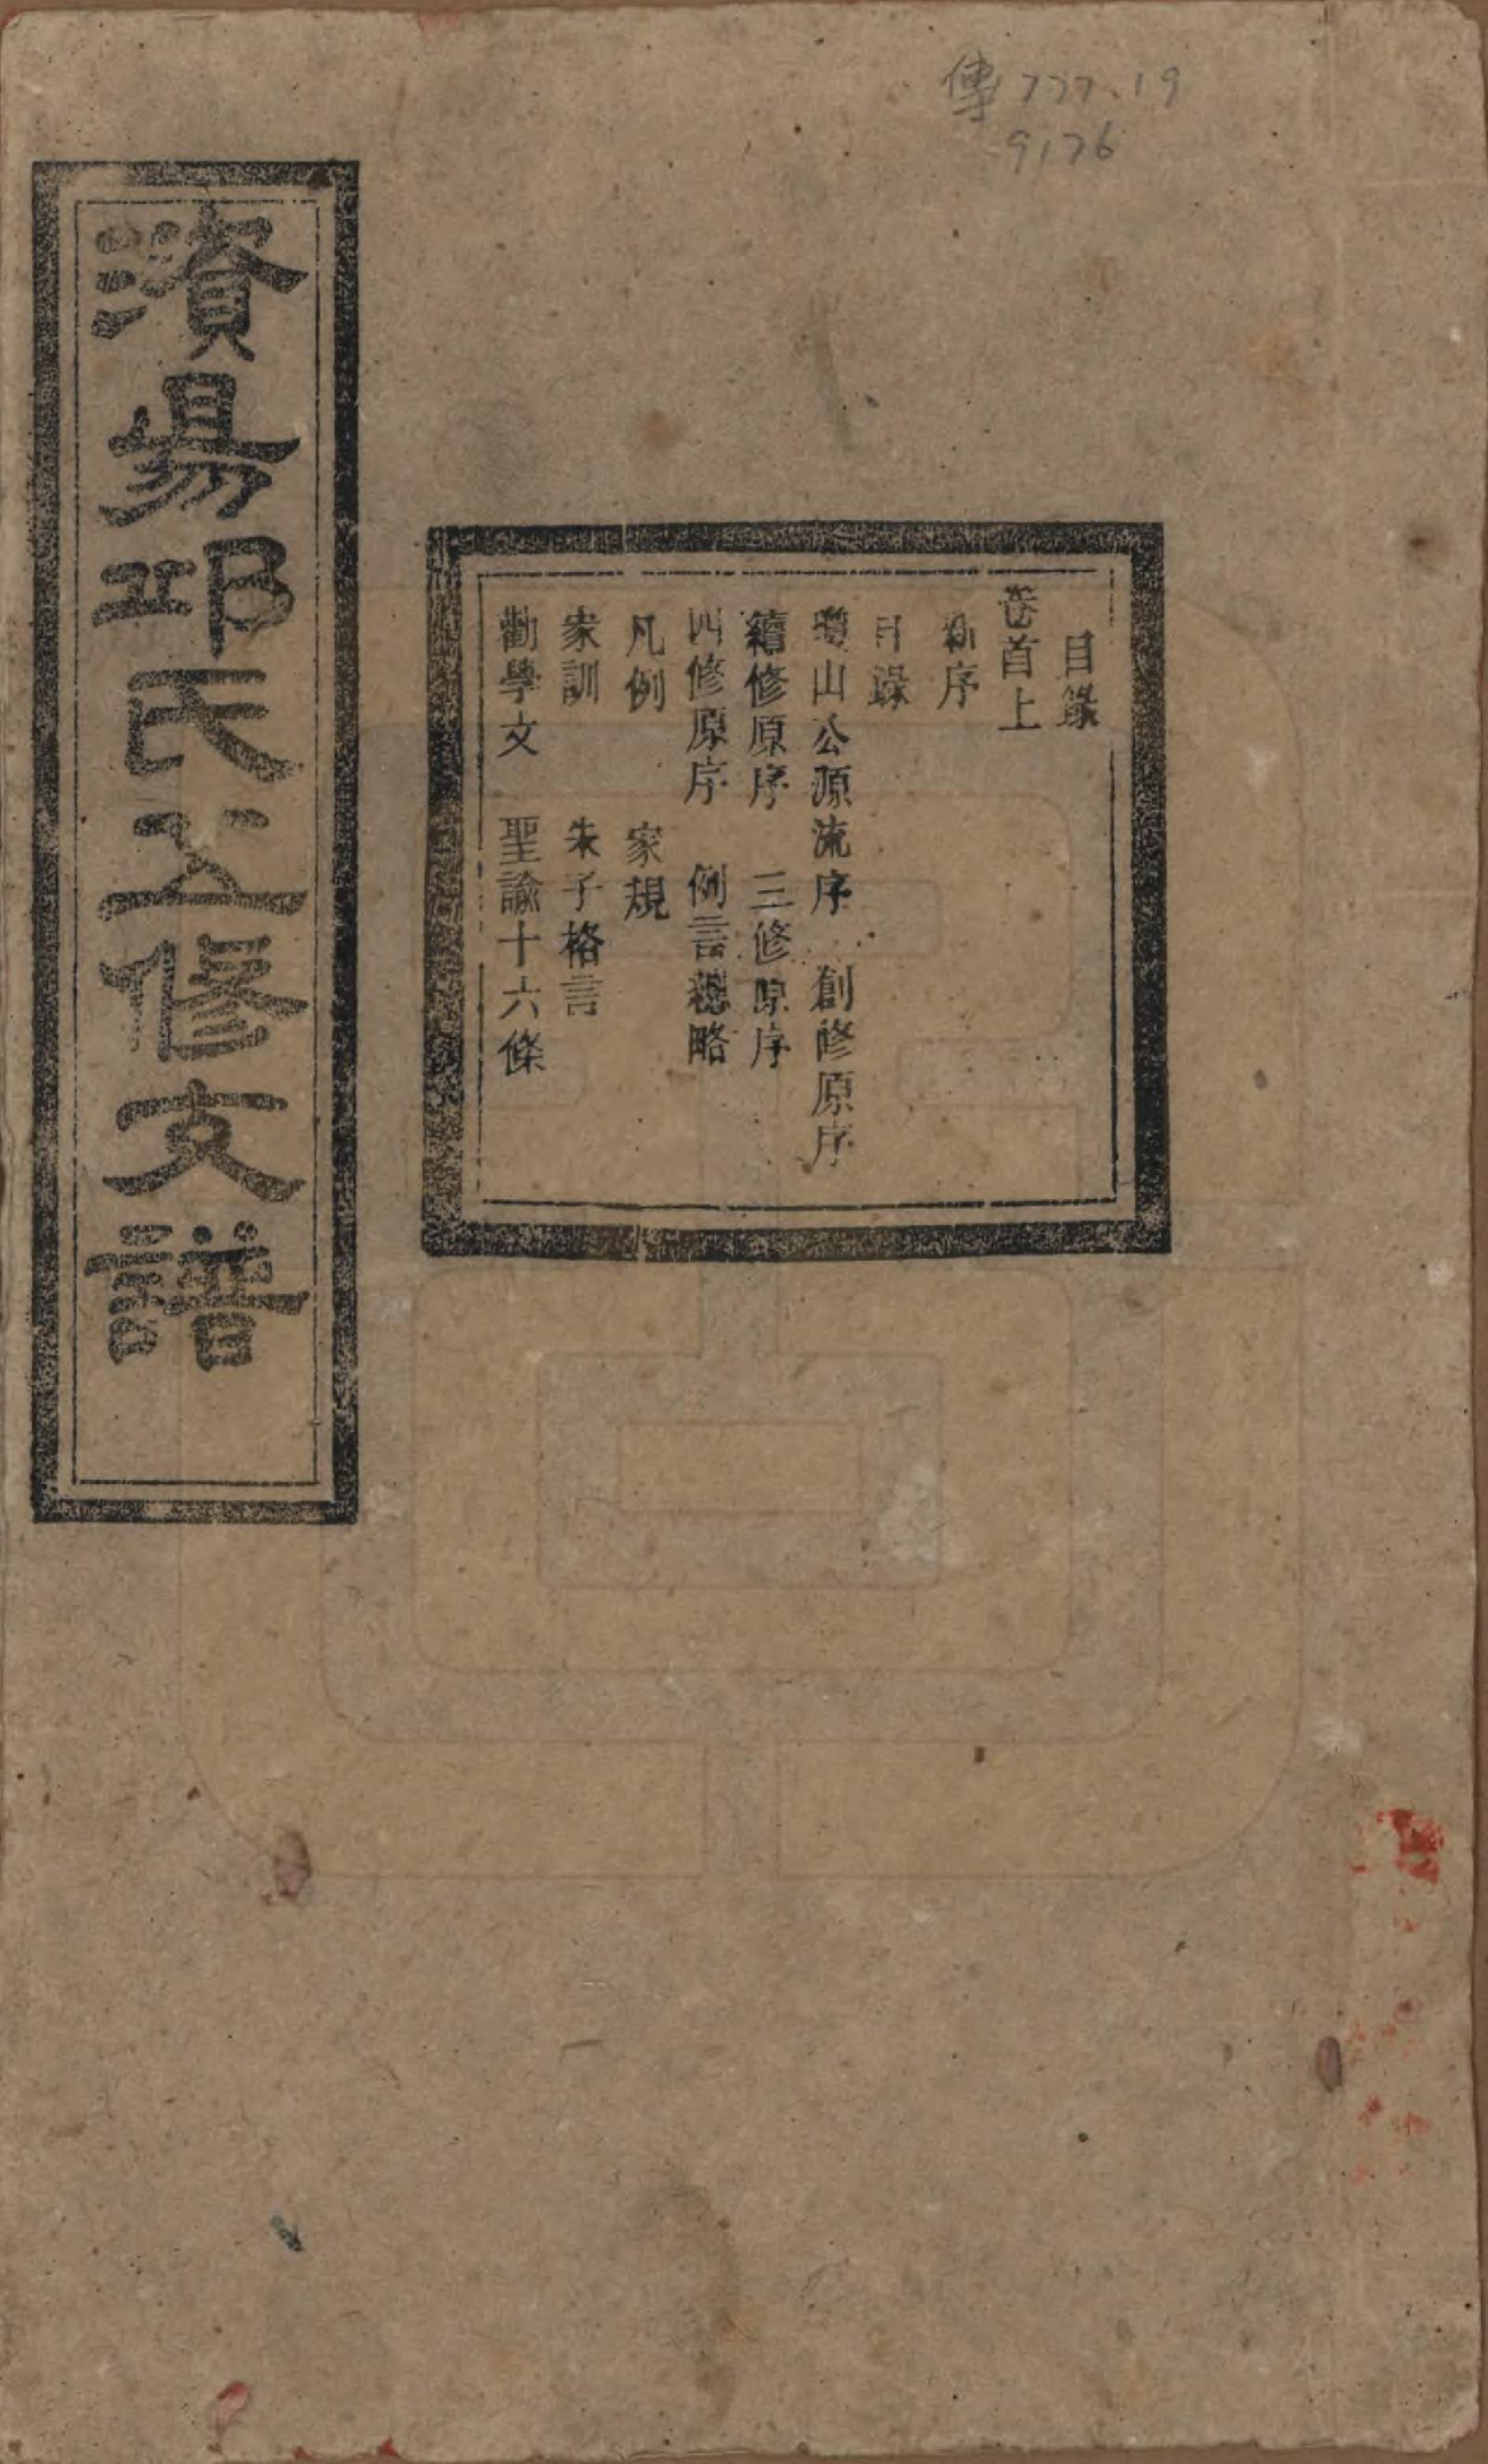 傳777.19
9176
目錄
卷首上
新序
目錄
瓊山公源流序 創修原序
續修原序 三修原序
四修原序 例言總略
凡例 家規
家訓 朱子格言
勸學文 聖諭十六條
濱昜邱氏五修支譜